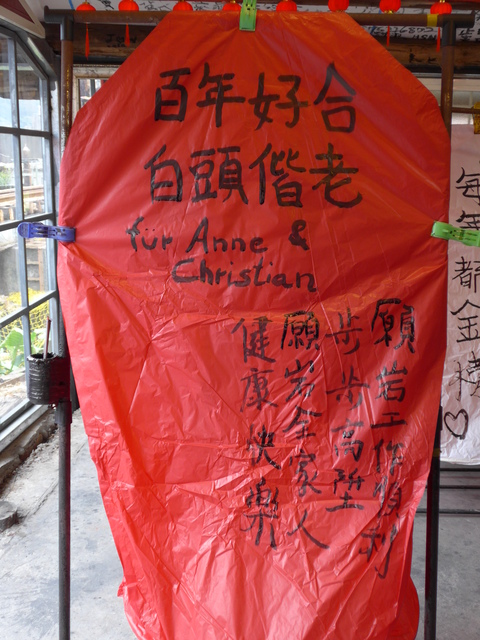 百年好合
白頭偕老
für Anne &
Christian
願岩工作順利
步步高陞
願岩全家人
健康快樂
每年都金榜